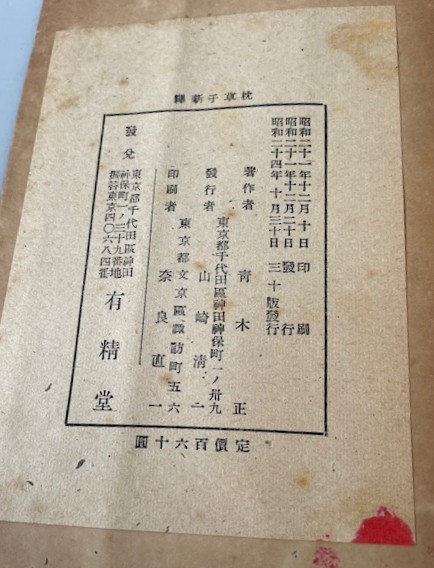 枕草子新釋
昭和二十一年十二月十日印刷
昭和二十一年十二月二十日發行
昭和二十四年十月三十日三十版發行
著作者 青木正
東京都千代田區神田神保町一ノ卅九
發行者 山崎清一
東京都文京區諏訪町五六
印刷者 奈良直一
發兌
東京都千代田區神田
神保町一ノ三十九番地
振替東京四〇六八四番
有精堂
定價百六十圓